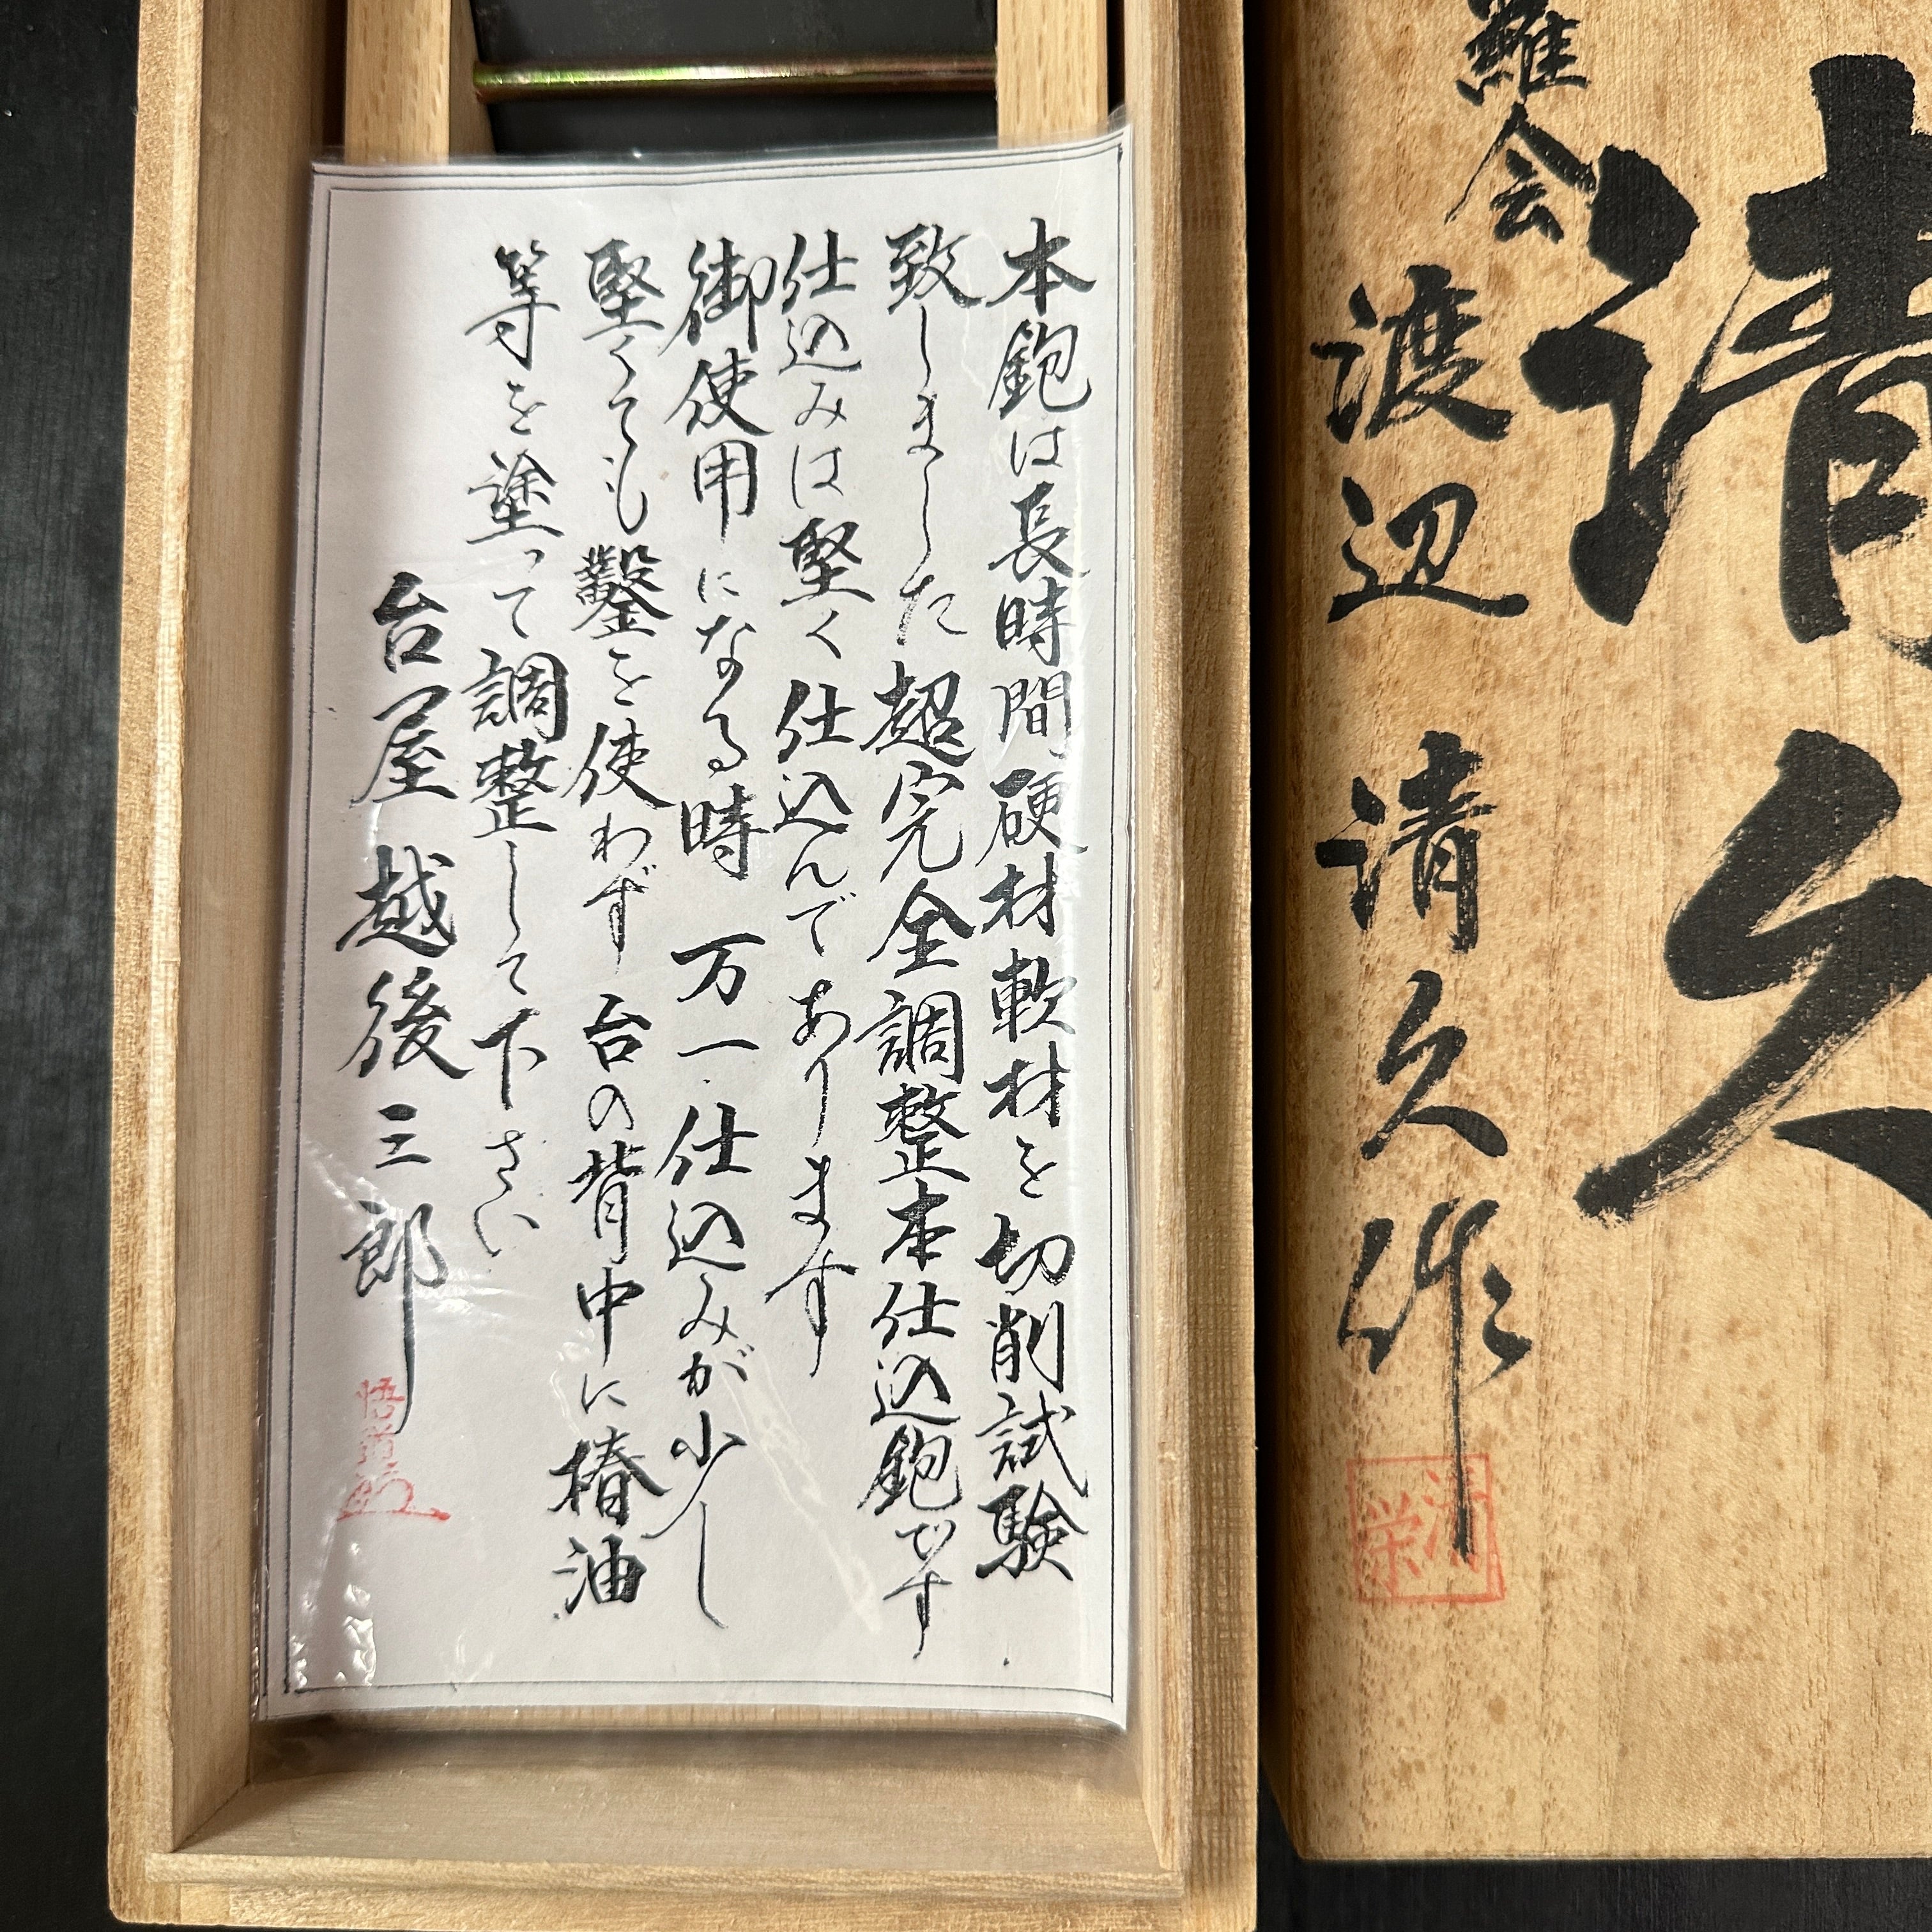 清久
羅会
渡辺 清久作
清栄
本鉋は長時間硬材軟材を切削試験
致しました超完全調整本仕込鉋です
仕込みは堅く仕込んであります
御使用になる時 万一仕込みが少し
堅くても鑿を使わず 台の背中に椿油
等を塗って調整して下さい
台屋 越後三郎